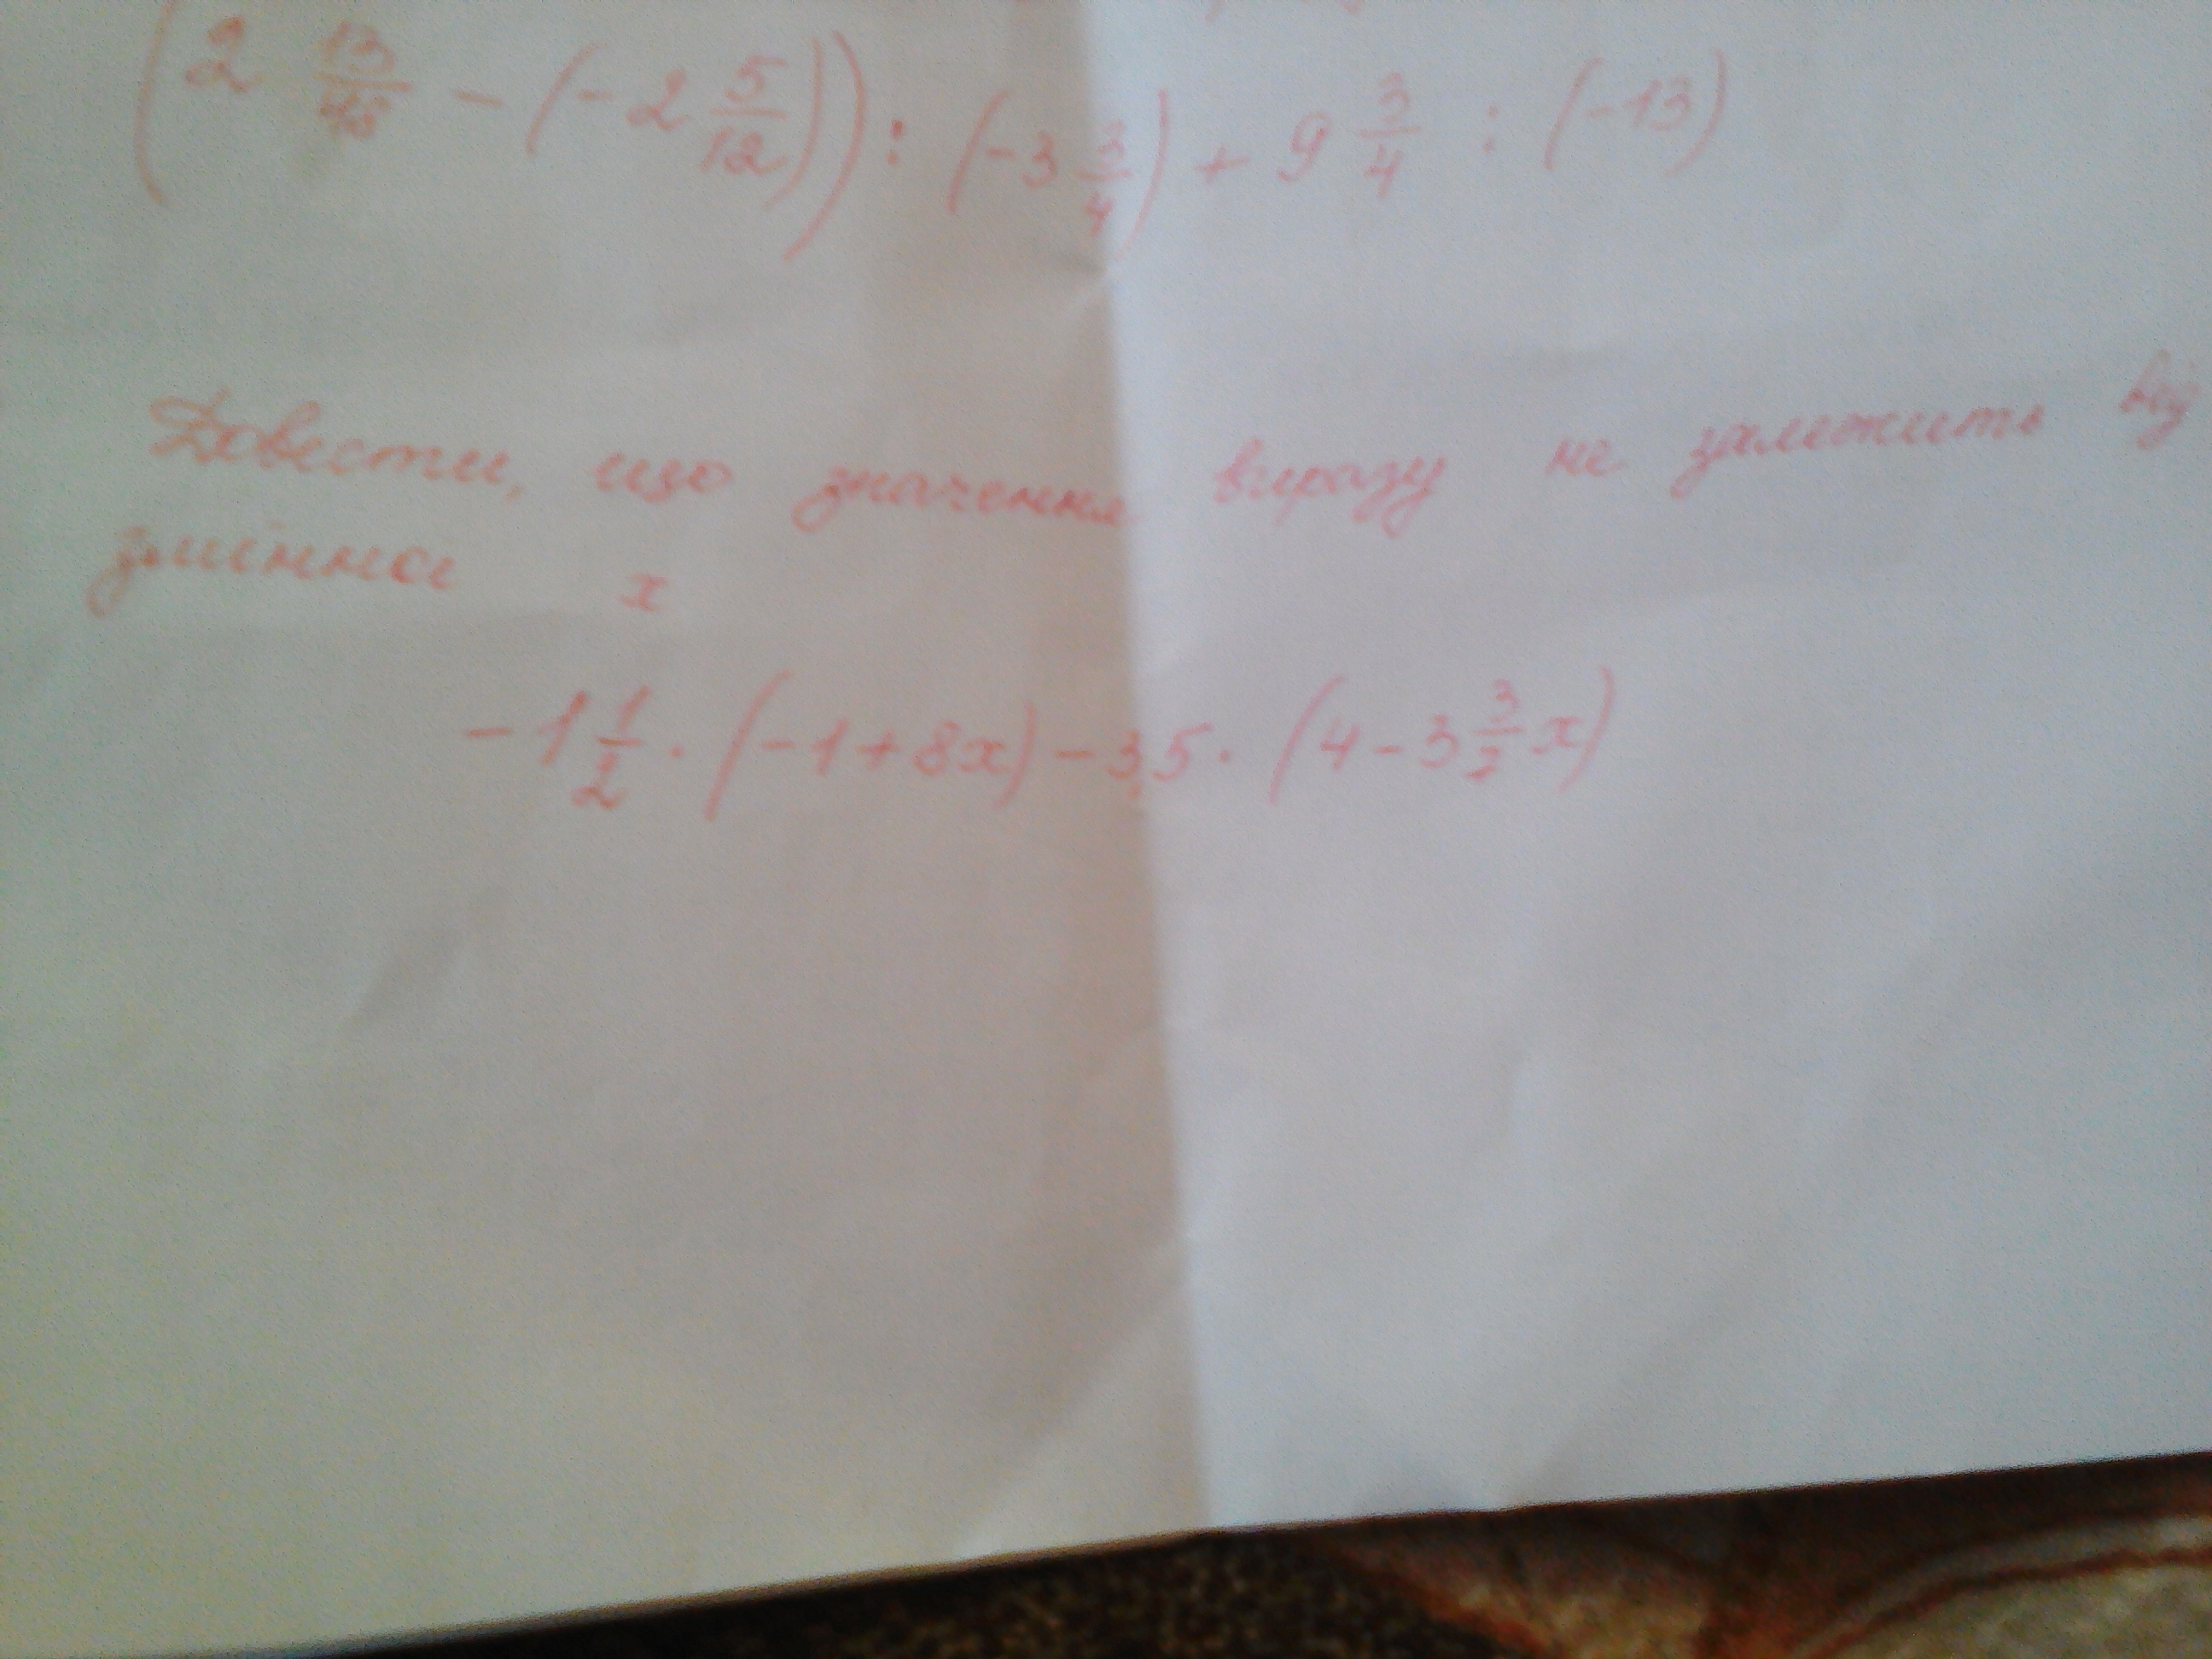 (2 13/48 - (-2 5/12)) : (-3 3/4) + 9 3/4 : (-13)
Довести, що значення виразу не залежить від
змінної x
-1 1/2 · (-1+8x) - 3,5 · (4 - 3 3/7 x)